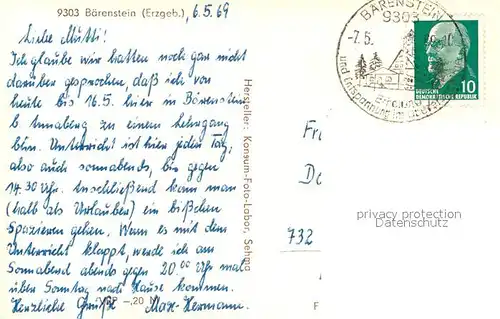 9303 Bärenstein (Erzgeb.) 6.5.69
Liebe Mutti!
Ich glaube wir hatten noch gar nicht
darüber gesprochen, daß ich von
heute bis 16.5. hier in Bärenstein
b Annaberg zu einem Lehrgang
bin. Unterricht ist hier jeden Tag,
also auch sonnabends, bis gegen
14.30 Uhr. Anschließend kann man
(halb als Urlauber) ein bißchen
Spazieren gehen. Wenn es mit dem
Unterricht klappt, werde ich am
Sonnabend abends gegen 20.00 Uhr mal
über Sonntag nach Hause kommen.
Herzliche Grüße Max-Hermann.
VP –,20 M
Hersteller: Konsum-Foto-Labor, Sehma
BÄRENSTEIN
9303
-7.5.
und Entspannung im
DEUTSCHE
DEMOKRATISCHE REPUBLIK
10
Fr
De
privacy protection
Datenschutz
732
F